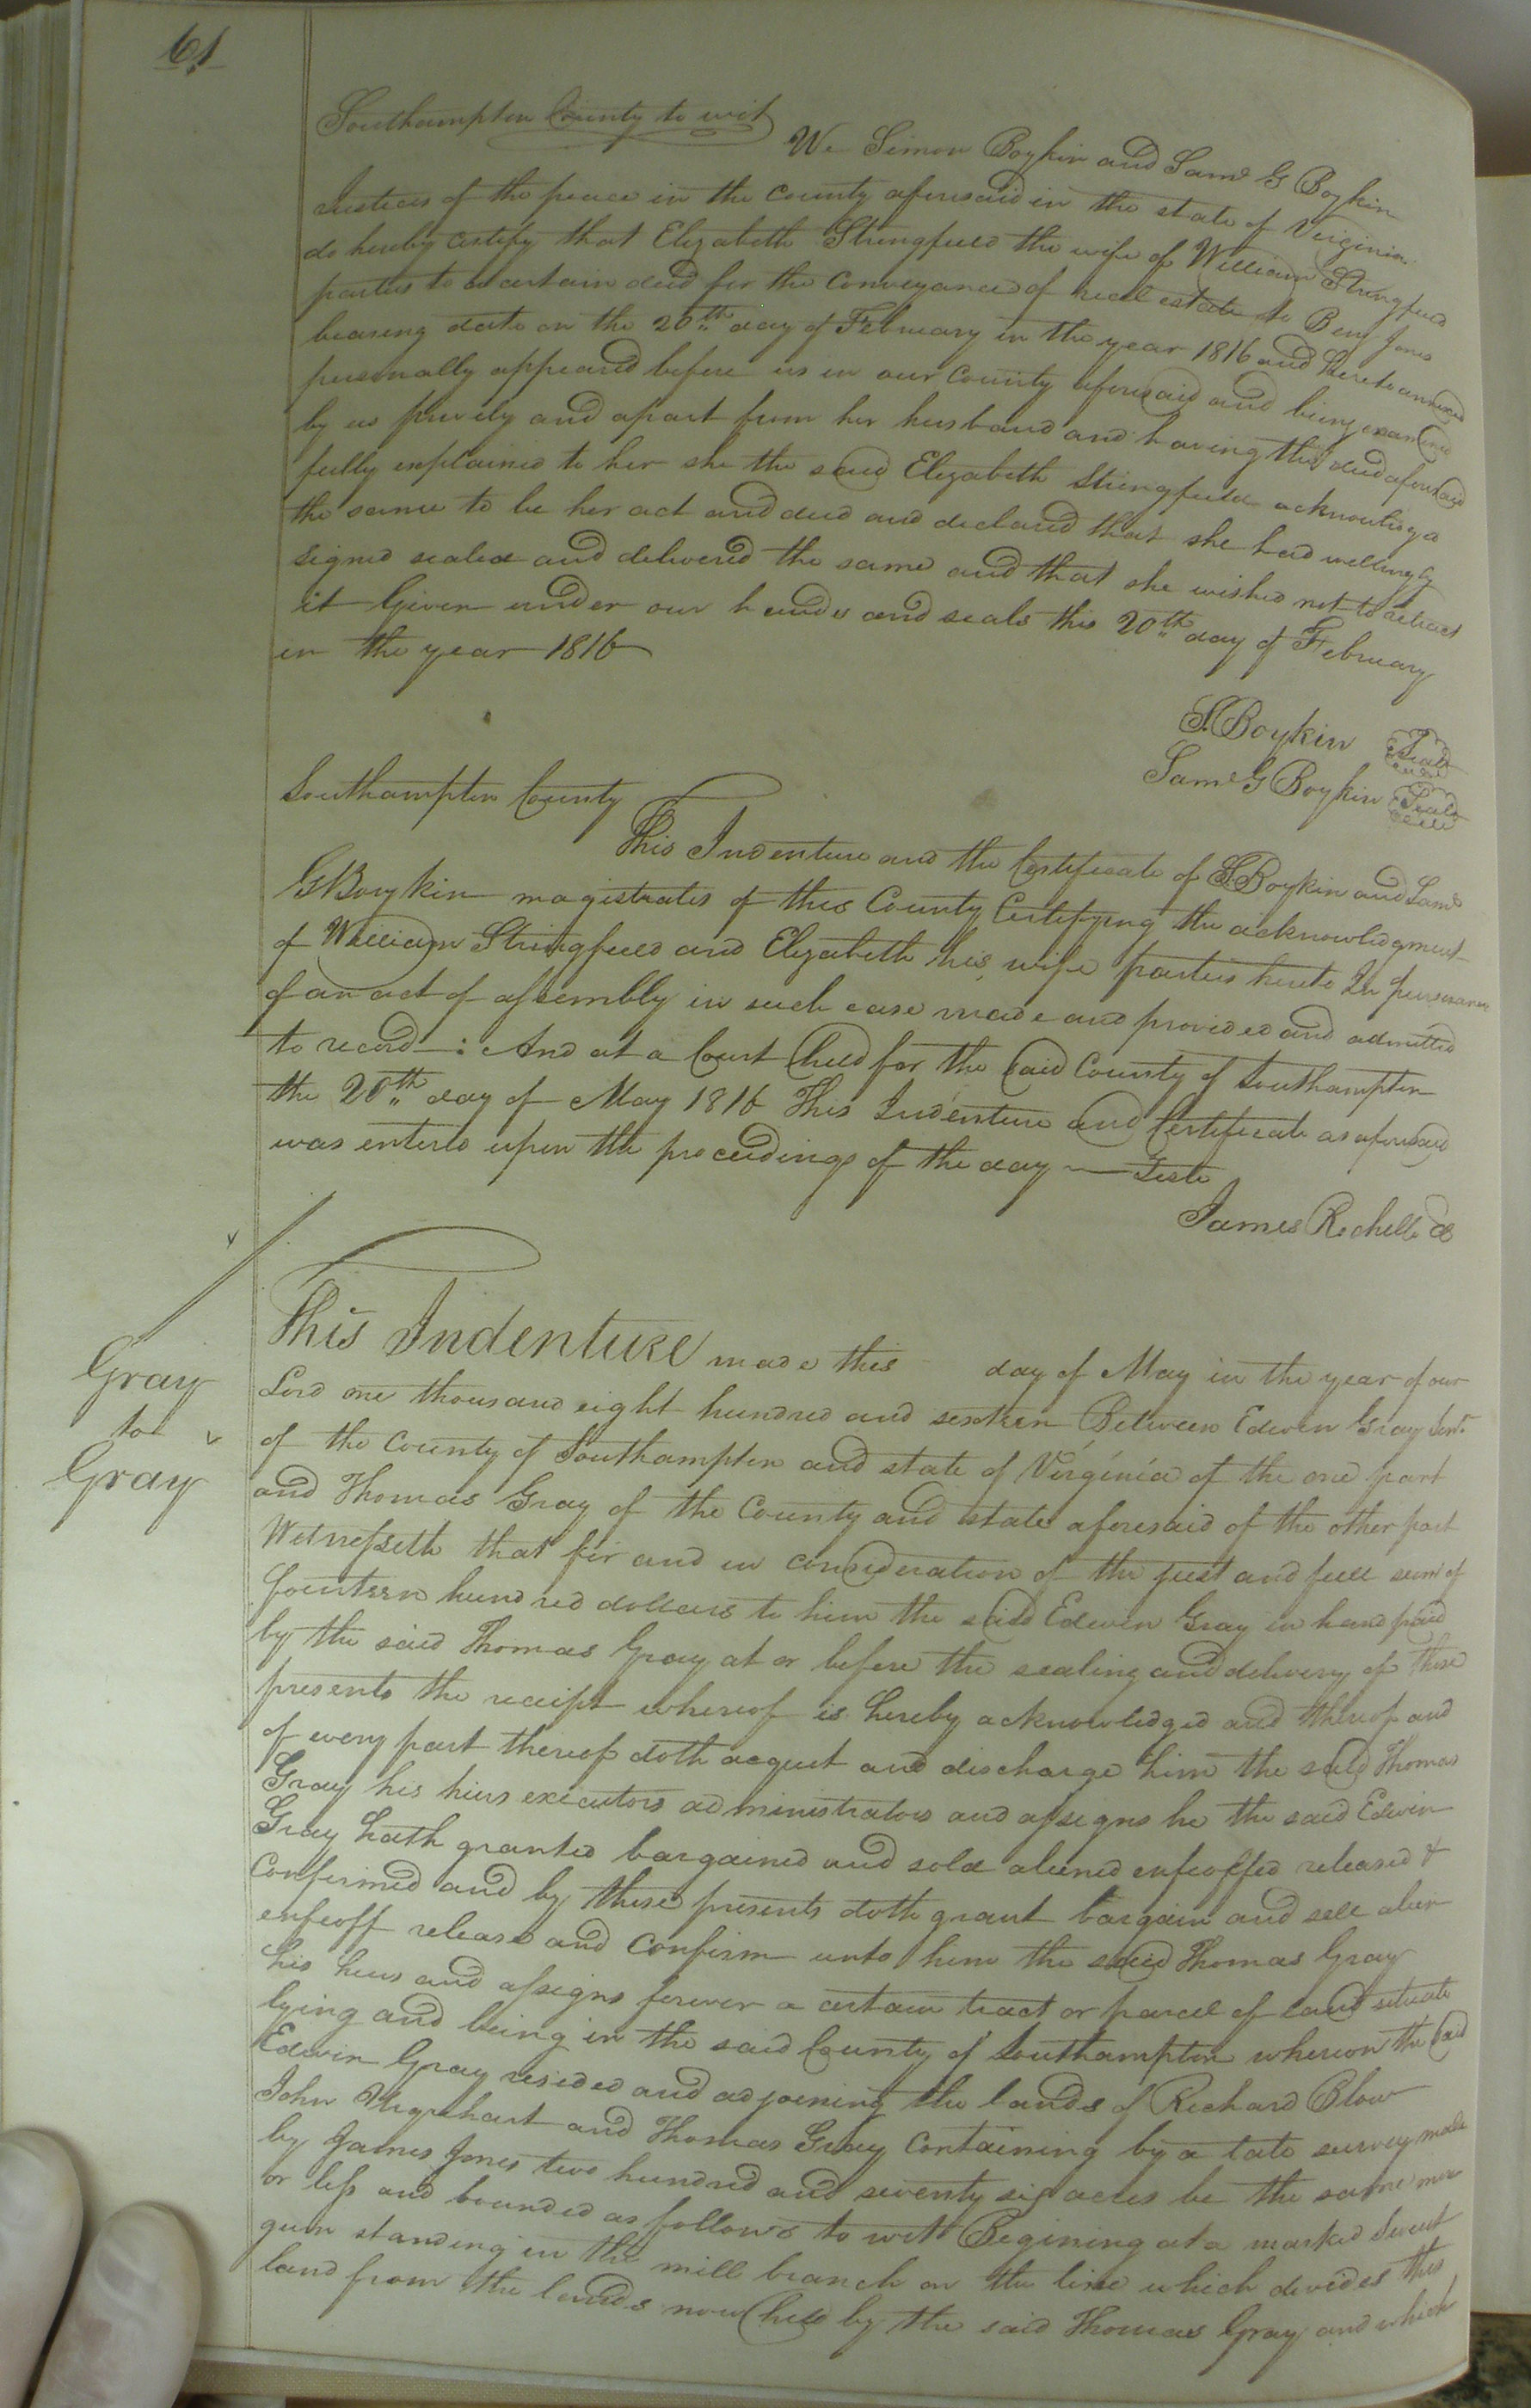 61
Southampton County to wit
We Simon Boykin and Saml G Boykin
Justices of the peace in the County aforesaid in the state of Virginia
do hereby certify that Elizabeth Stringfield the wife of William Stringfield
parties to a certain deed for the Conveyance of real estate to Benj Jones
bearing date on the 20th day of February in the year 1816 and hereto annexed
personally appeared before us in our County aforesaid and being examined
by us privily and apart from her husband and having the deed aforesaid
fully explained to her she the said Elizabeth Stringfield acknowledged
the same to be her act and deed and declared that she had willingly
signed sealed and delivered the same and that she wished not to retract
it Given under our hands and seals this 20th day of February
in the year 1816
S. Boykin Seal
Saml G Boykin Seal
Southampton County
This Indenture and the Certificate of S. Boykin and Saml
G Boykin magistrates of this County Certifying the acknowledgment
of William Stringfield and Elizabeth his wife parties hereto In pursuance
of an act of assembly in such case made and provided and admitted
to record : And at a Court held for the said County of Southampton
the 20th day of May 1816 This Indenture and Certificate as aforesaid
was entered upon the proceedings of the day — Teste
James Rochelle
Gray
to
Gray
This Indenture made this day of May in the year of our
Lord one thousand eight hundred and sixteen Between Edwin Gray Senr
of the County of Southampton and state of Virginia of the one part
and Thomas Gray of the County and state aforesaid of the other part
Witnesseth that for and in consideration of the just and full sum of
fourteen hundred dollars to him the said Edwin Gray in hand paid
by the said Thomas Gray at or before the sealing and delivery of these
presents the receipt whereof is hereby acknowledged and thereof and
of every part thereof doth acquit and discharge him the said Thomas
Gray his heirs executors administrators and assigns he the said Edwin
Gray hath granted bargained and sold aliened enfeoffed released &
Confirmed and by these presents doth grant bargain and sell alien
enfeoff release and Confirm unto him the said Thomas Gray
his heirs and assigns forever a certain tract or parcel of land situate
lying and being in the said County of Southampton whereon the said
Edwin Gray resided and adjoening the lands of Richard Blow
John Urquhart and Thomas Gray Containing by a late survey made
by James Jones two hundred and seventy six acres be the same more
or less and bounded as follows to wit Begining at a marked Sweet
gum standing in the mill branch on the line which divides this
land from the lands now held by the said Thomas Gray and which